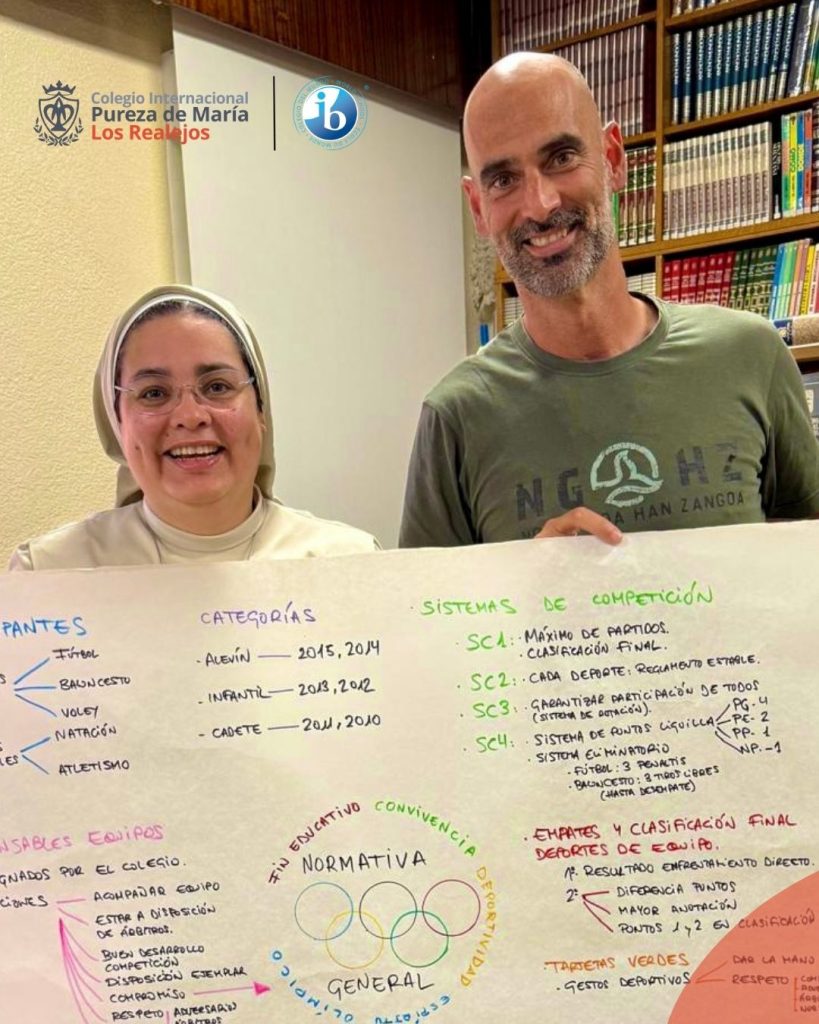 Colegio Internacional
Pureza de María
Los Realejos
ib
NG HZ
HAN ZANGOA
PANTES
FÚTBOL
BALONCESTO
VOLEY
NATACIÓN
ATLETISMO
CATEGORÍAS
- ALEVÍN — 2015, 2014
- INFANTIL — 2013, 2012
- CADETE — 2011, 2010
· SISTEMAS DE COMPETICIÓN
· SC1: · MÁXIMO DE PARTIDOS.
· CLASIFICACIÓN FINAL.
· SC2: · CADA DEPORTE: REGLAMENTO ESTABLE.
· SC3: · GARANTIZAR PARTICIPACIÓN DE TODOS
(SISTEMA DE ROTACIÓN).
SC4: · SISTEMA DE PUNTOS LIGUILLA
PG-4
PE-2
PP-1
NP.-1
· SISTEMA ELIMINATORIO
· FÚTBOL: 3 PENALTIS
· BALONCESTO: 3 TIROS LIBRES
(HASTA DESEMPATE)
NSABLES EQUIPOS
GNADOS POR EL COLEGIO.
CIONES
ACOMPAÑAR EQUIPO
ESTAR A DISPOSICIÓN
DE ÁRBITROS.
BUEN DESARROLLO
COMPETICIÓN
DISPOSICIÓN EJEMPLAR
COMPROMISO
RESPETO
ADVERSARIO
ÁRBITROS
FIN EDUCATIVO CONVIVENCIA DEPORTIVIDAD ESPÍRITU OLÍMPICO
NORMATIVA
GENERAL
· EMPATES Y CLASIFICACIÓN FINAL
DEPORTES DE EQUIPO.
1º. RESULTADO ENFRENTAMIENTO DIRECTO.
2º
DIFERENCIA PUNTOS
MAYOR ANOTACIÓN
PUNTOS 1 y 2 EN CLASIFICACIÓN
· TARJETAS VERDES
- GESTOS DEPORTIVOS
DAR LA MANO
RESPETO